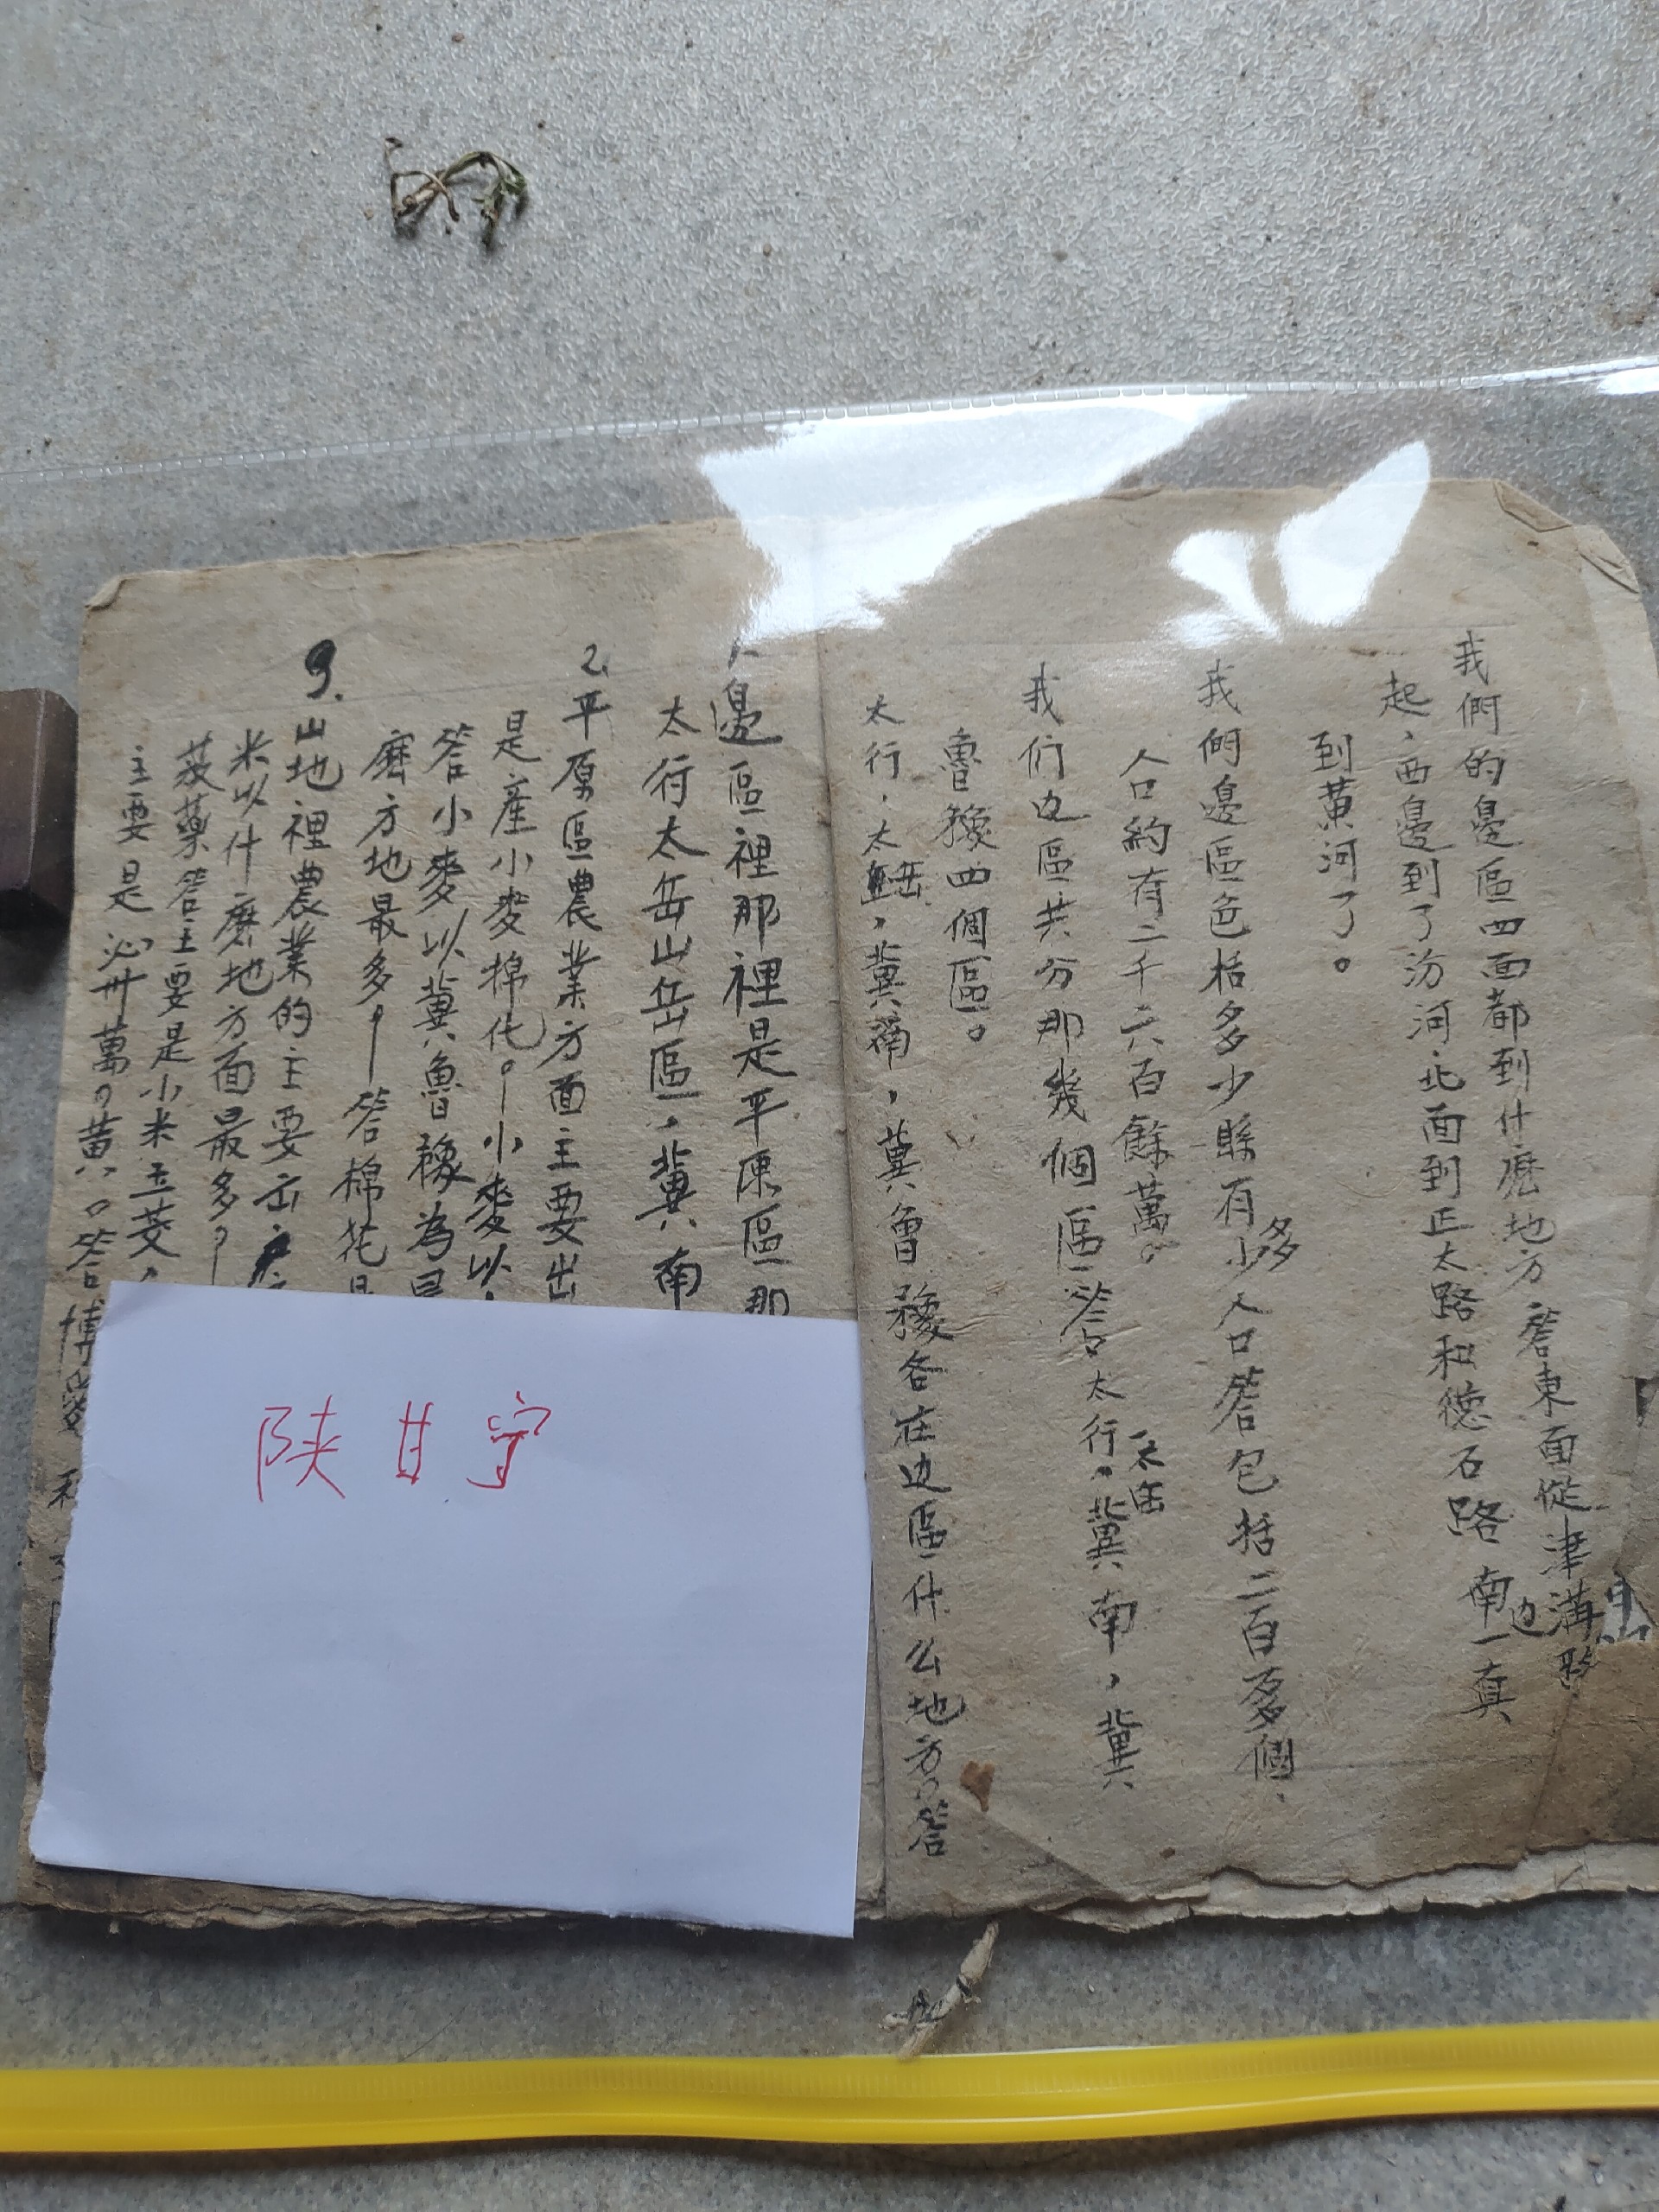 我們的邊區四面都到什麼地方 答東面從津溝路
起，西邊到了汾河北面到正太路和德石路 南边一直
到黃河了。
我們邊區包括多少縣有多少人口答包括二百多個
人口約有二千六百餘萬。
我们边區共分那幾個區答太行，太岳冀南，冀
魯豫四個區。
太行，太岳，冀南，冀魯豫各在边區什么地方？答
邊區裡那裡是平原區那
太行太岳山岳區，冀南
2. 平原區農業方面主要出
是產小麥棉花。小麥以
答小麥以冀魯豫為最
麼方地最多？答棉花是
3. 山地裡農業的主要出
米以什麼地方面最多？
茭藥答主要是小米玉茭，
主要是 沁州萬
黃
答博愛
陕甘宁